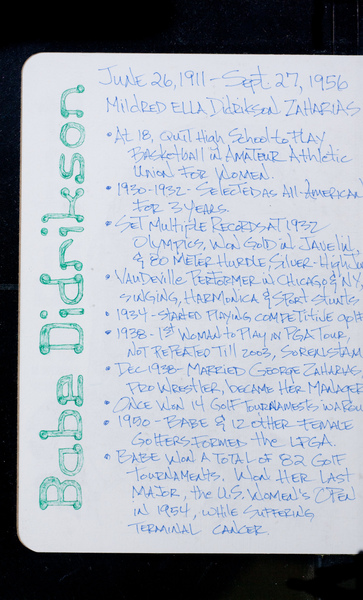 Babe Didrikson
June 26, 1911 - Sept. 27, 1956
Mildred Ella Didrikson Zaharias
• At 18, quit High School to play
Basketball in Amateur Athletic
Union for Women.
• 1930-1932 - Selected as All-American
for 3 years.
• Set Multiple Records at 1932
Olympics, won Gold in Javelin,
& 80 meter Hurdle, Silver - High Ju
• Vaudeville Performer in Chicago & N.Y,
singing, Harmonica & Sport Stunts.
• 1934 - started playing competitive golf
• 1938 - 1st woman to play in PGA Tour,
not repeated till 2003, Sorenstam
• Dec 1938 - married George Zaharias,
Pro Wrestler, became her manager
• Once won 14 Golf Tournaments in a Row
• 1950 - Babe & 12 other Female
Golfers formed the LPGA.
• Babe won a total of 82 Golf
Tournaments. Won her last
major, the U.S. Women's Open
in 1954, while suffering
terminal cancer.